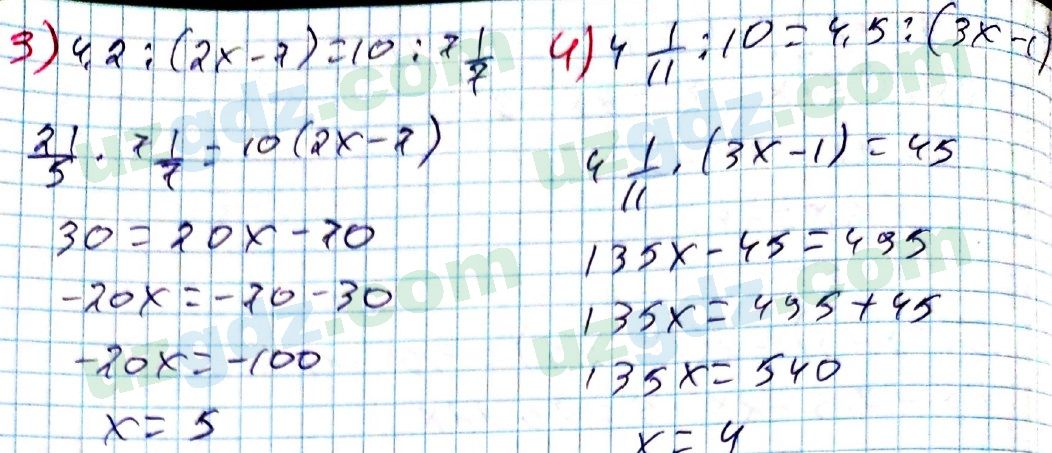 3) 4,2 : (2x - 7) = 10 : 7 1/7
21/5 · 7 1/7 = 10(2x - 7)
30 = 20x - 70
-20x = -70 - 30
-20x = -100
x = 5
4) 4 1/11 : 10 = 4,5 : (3x - 1)
4 1/11 · (3x - 1) = 45
135x - 45 = 495
135x = 495 + 45
135x = 540
x = 4
uzgdz.com
uzgdz.com
uzgdz.com
uzgdz.com